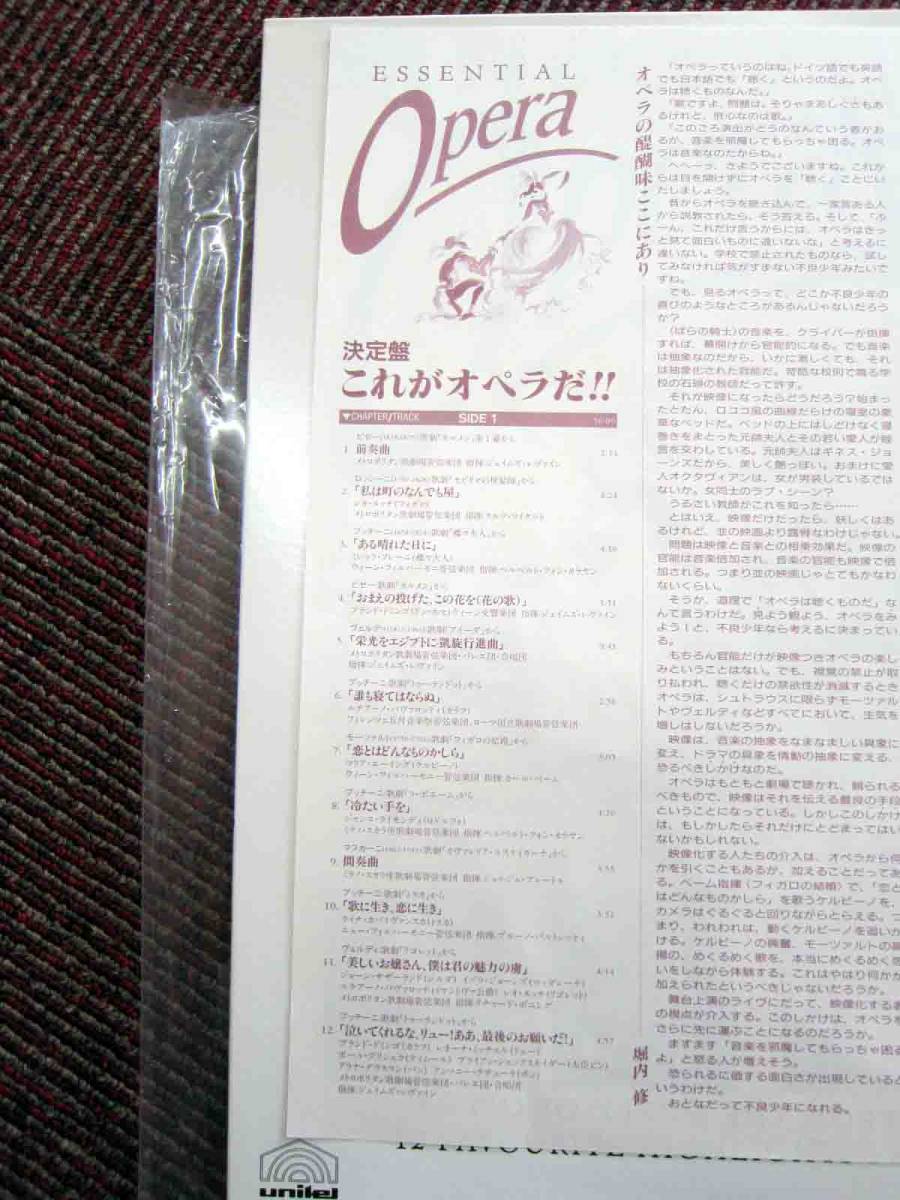 ESSENTIAL
Opera
決定盤
これがオペラだ!!
▼CHAPTER/TRACK SIDE 1
ビゼー 歌劇「カルメン」第1幕から
1. 前奏曲
メトロポリタン歌劇場管弦楽団 指揮:ジェイムズ・レヴァイン
ロッシーニ 歌劇「セビリャの理髪師」から
2. 「私は町のなんでも屋」
プッチーニ 歌劇「蝶々夫人」から
3. 「ある晴れた日に」
ミレッラ・フレーニ(蝶々夫人)
ウィーン・フィルハーモニー管弦楽団 指揮:ヘルベルト・フォン・カラヤン
ビゼー:歌劇「カルメン」から
4. 「おまえの投げた、この花を(花の歌)」
ヴェルディ 歌劇「アイーダ」から
5. 「栄光をエジプトに・凱旋行進曲」
メトロポリタン歌劇場管弦楽団・バレエ団・合唱団
指揮:ジェイムズ・レヴァイン
プッチーニ:歌劇「トゥーランドット」から
6. 「誰も寝てはならぬ」
ルチアーノ・パヴァロッティ(カラフ)
フィレンツェ五月音楽祭管弦楽団、ローマ国立歌劇場管弦楽団
モーツァルト 歌劇「フィガロの結婚」から
7. 「恋とはどんなものかしら」
マリア・ユーイング(ケルビーノ)
ウィーン・フィルハーモニー管弦楽団 指揮:カール・ベーム
プッチーニ:歌劇「ラ・ボエーム」から
8. 「冷たい手を」
ミラノ・スカラ座歌劇場管弦楽団 指揮:ヘルベルト・フォン・カラヤン
マスカーニ 歌劇「カヴァレリア・ルスティカーナ」から
9. 間奏曲
ミラノ・スカラ座歌劇場管弦楽団 指揮:ジョルジュ・プレートル
プッチーニ:歌劇「トスカ」から
10. 「歌に生き、恋に生き」
ライナ・カバイヴァンスカ(トスカ)
ニュー・フィルハーモニー管弦楽団 指揮:ブルーノ・バルトレッティ
ヴェルディ:歌劇「リゴレット」から
11. 「美しいお嬢さん、僕は君の魅力の虜」 4:14
メトロポリタン歌劇場管弦楽団 指揮:リチャード・ボニング
プッチーニ:歌劇「トゥーランドット」から
12. 「泣いてくれるな、リュー!ああ、最後のお願いだ!」 4:57
メトロポリタン歌劇場管弦楽団・バレエ団・合唱団
指揮:ジェイムズ・レヴァイン
オペラの醍醐味ここにあり
堀内 修
「オペラっていうのはね、ドイツ語でも英語
でも日本語でも「聴く」というのだよ。オペ
ラは聴くものなんだ。」
「歌ですよ、問題は。そりゃまあしぐさもあ
るけれど、肝心なのは歌。」
「このごろ演出がどうのなんていう者がお
るが、音楽を邪魔してもらっちゃ困る。オペ
ラは音楽なのだからね。」
へへーっ、さようでございますね。これか
らは目を開けずにオペラを「聴く」ことにい
たしましょう。
昔からオペラを聴き込んで、一家言ある人
から説教されたら、そう答える。そして、「ふ
ーん、これだけ言うからには、オペラはきっ
と見て面白いものに違いないな」と考えるに
違いない。学校で禁止されたものなら、試し
てみなければ気がすまない不良少年みたいで
すね。
でも、見るオペラって、どこか不良少年の
喜びのようなところがあるんじゃないだろう
か?
〈ばらの騎士〉の音楽を、クライバーが指揮
すれば、幕開けから官能的になる。でも音楽
は抽象なのだから、いかに激しくても、それ
は抽象化された官能だ。苛酷な校則で鳴る学
校の石頭の教師だって許す。
それが映像になったらどうだろう?始まっ
たとたん、ロココ風の曲線だらけの寝室の豪
華なベッドだ。ベッドの上にはしどけなく寝
巻きをまとった元帥夫人とその若い愛人が睦
言を交わしている。元帥夫人はギネス・ジョ
ーンズだから、美しく艶っぽい。おまけに愛
人オクタヴィアンは、女が男装しているでは
ないか。女同士のラブ・シーン?
うるさい教師がこれを知ったら……
とはいえ、映像だけだったら、妖しくはあ
るけれど、並の映画より露骨なわけじゃない。
問題は映像と音楽との相乗効果だ。映像の
官能は音楽倍加され、音楽の官能も映像で倍
加される。つまり並の映画じゃとてもかなわ
ないくらい。
そうか、道理で「オペラは聴くものだ」な
んて言うわけだ。見よう観よう、オペラをみ
よう!と、不良少年なら考えるに決まってい
る。
もちろん官能だけが映像つきオペラの楽し
みということはない。でも、視覚の禁止が取
り払われ、聴くだけの禁欲性が消滅するとき
オペラは、シュトラウスに限らずモーツァル
トやヴェルディなどすべてにおいて、生気を
増しはしないだろうか。
映像は、音楽の抽象をなまなましい具象に
変え、ドラマの具象を情動の抽象に変える、
恐るべきしかけなのだ。
オペラはもともと劇場で聴かれ、観られる
べきもので、映像はそれを伝える最良の手段
ということになっている。しかしこのしかけ
は、もしかしたらそれだけにとどまってはい
ないかもしれない。
映像化する人たちの介入は、オペラから何
かを引くこともあるが、加えることだってあ
る。ベーム指揮〈フィガロの結婚〉で、「恋と
はどんなものかしら」を歌うケルビーノを、
カメラはぐるぐると回りながらとらえる。つ
まり、われわれは、動くケルビーノを追いか
ける。ケルビーノの興奮、モーツァルトの
の、めくるめく歌を、本当にめくるめく思
いをしながら体験する。これはやはり何かが
加えられたというべきじゃないだろうか。
舞台上演のライヴにだって、映像化する者
の視点が介入する。このしかけは、オペラを
さらに先に運ぶことになるのだろうか。
ますます「音楽を邪魔してもらっちゃ困る
よ」と怒る人が増えそう。
恐れられるに価する面白さが出現していると
いうわけだ。
おとなだって不良少年になれる。
unitel